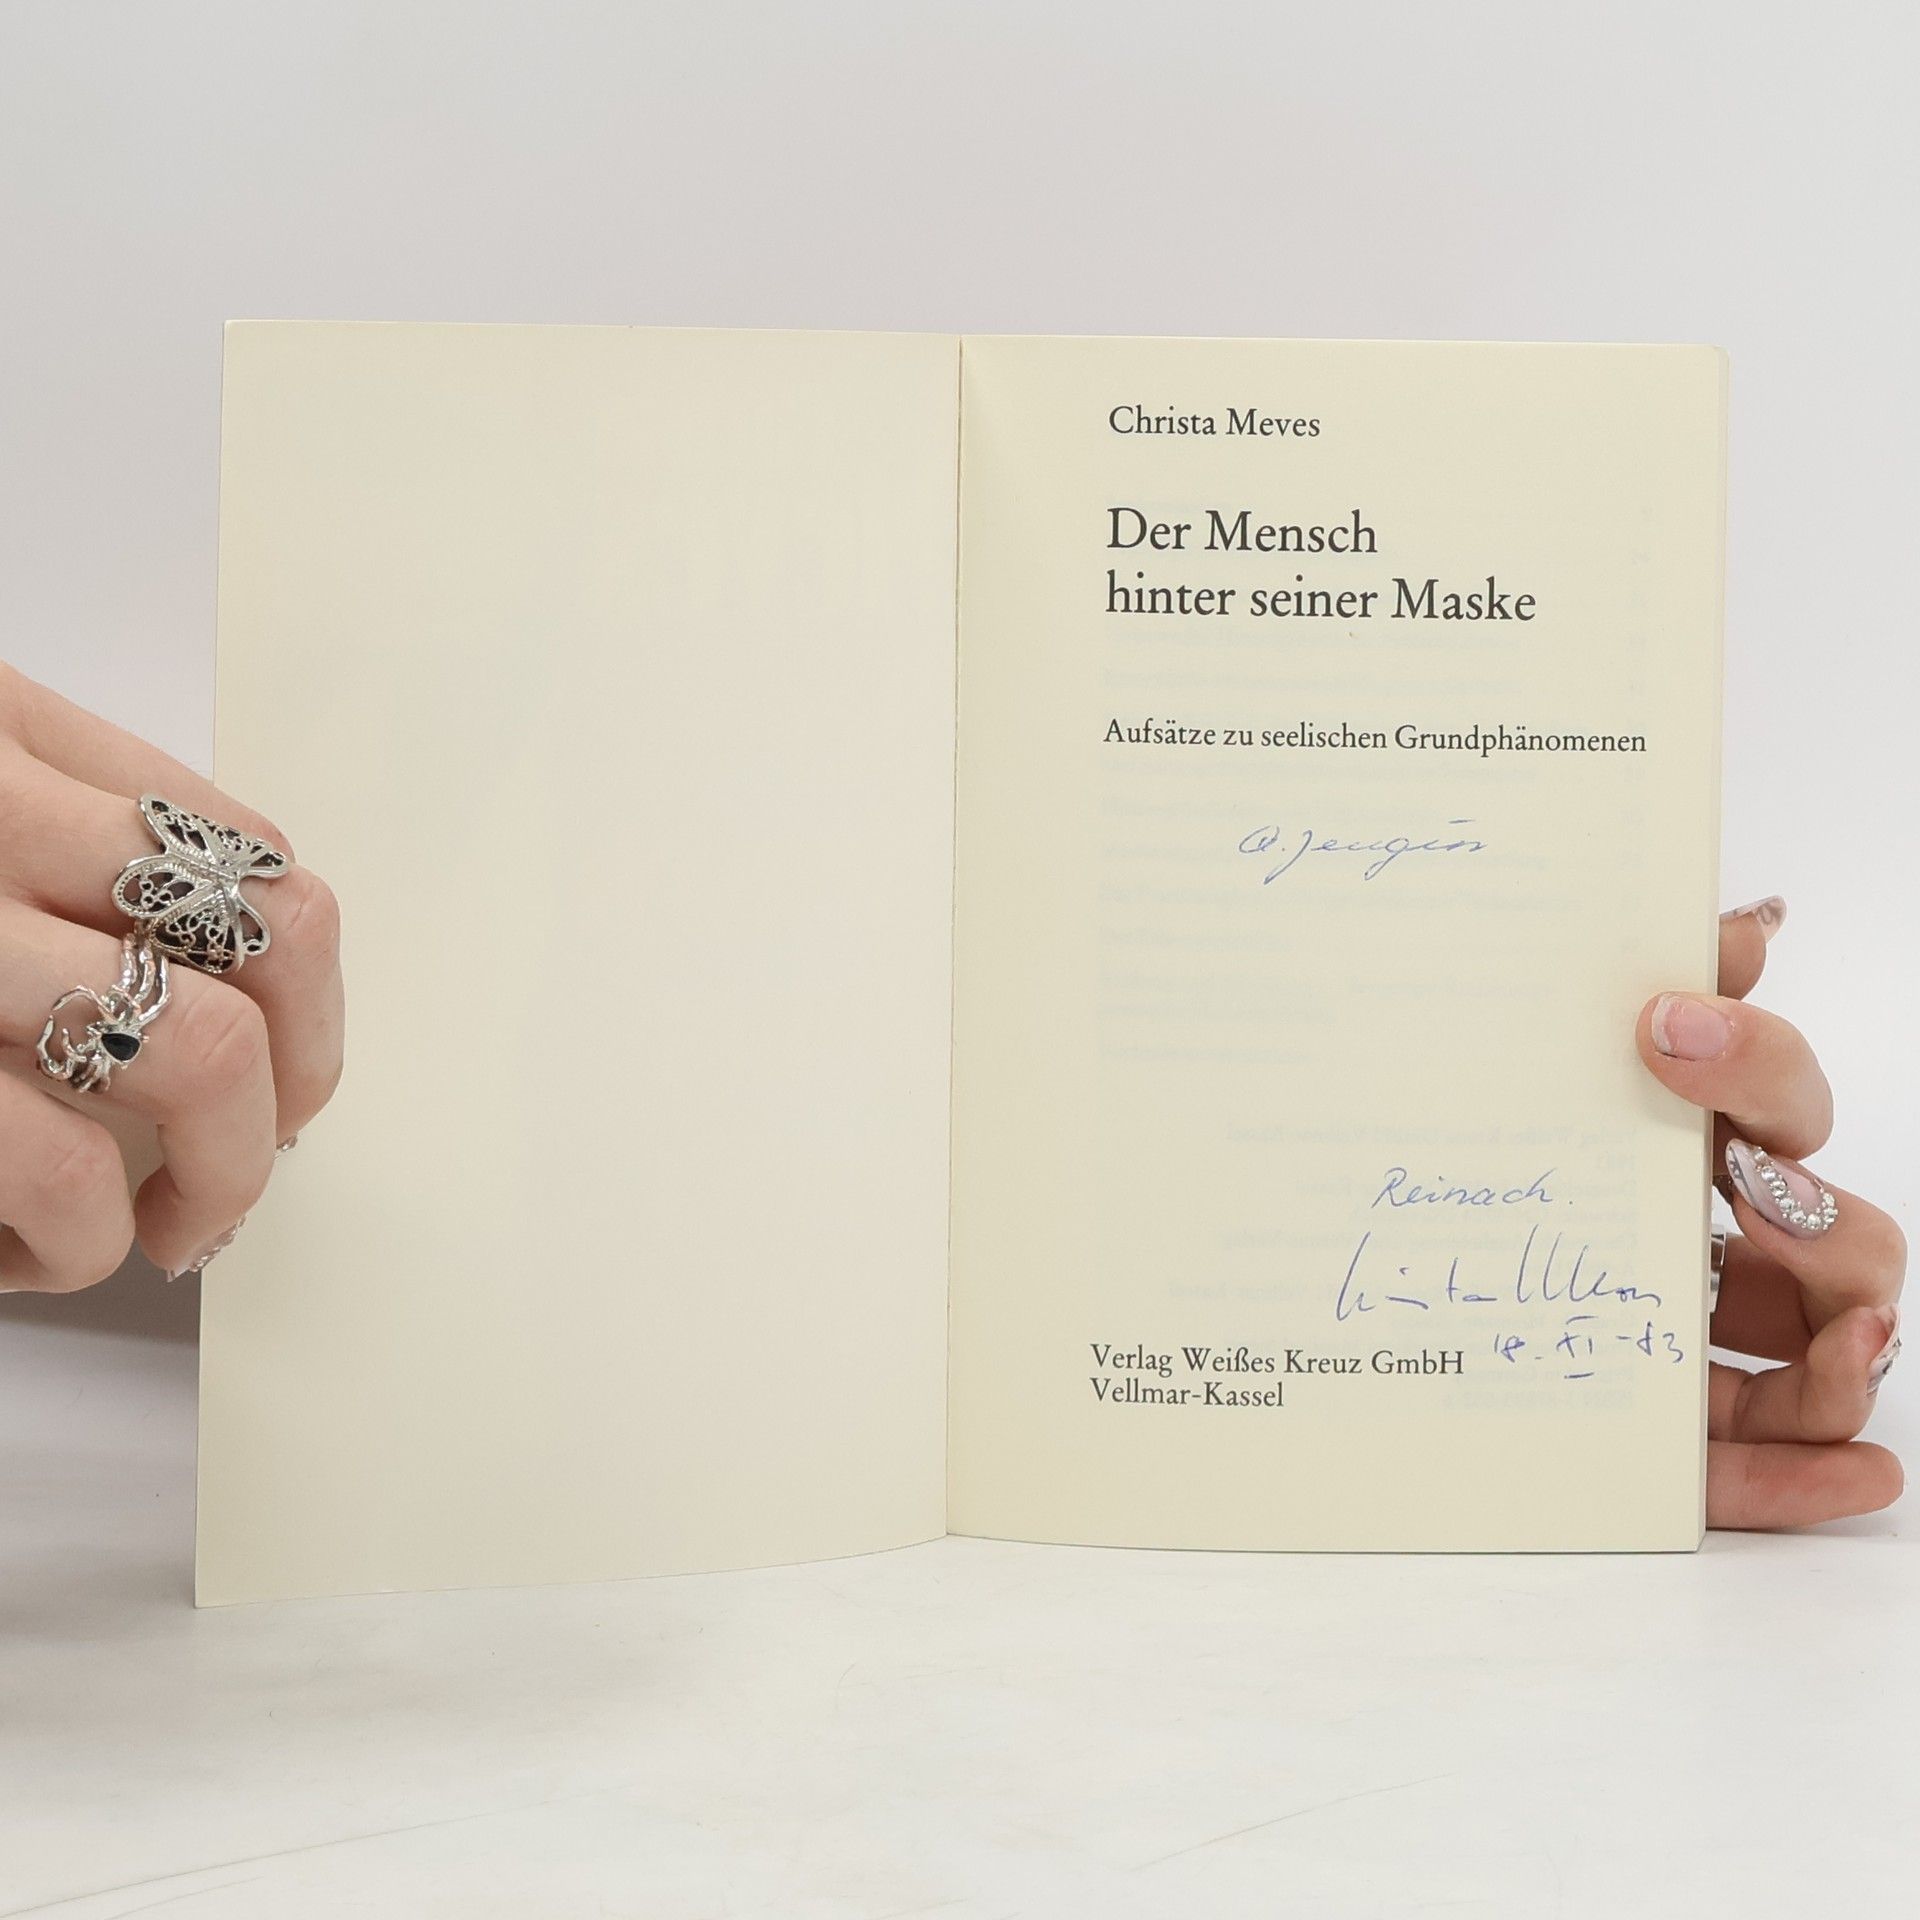 Christa Meves
Der Mensch
hinter seiner Maske
Aufsätze zu seelischen Grundphänomenen
Reinach.
Christa Meves
18. XI - 83
Verlag Weißes Kreuz GmbH
Vellmar-Kassel